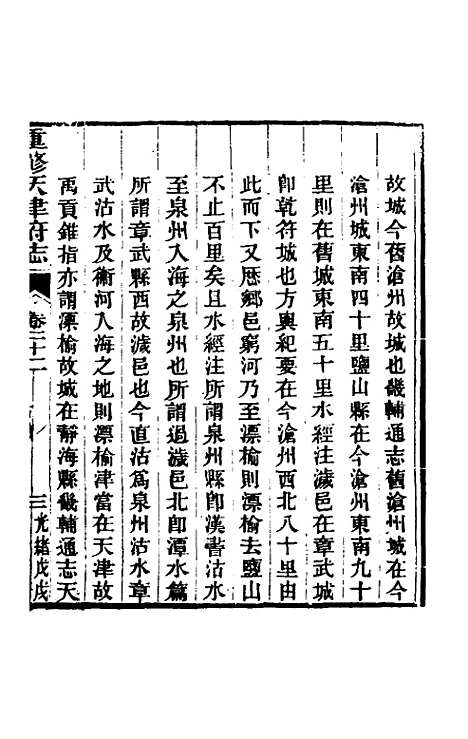 故城今舊滄州故城也畿輔通志舊滄州城在今
滄州城東南四十里鹽山縣在今滄州東南九十
里則在舊城東南五十里水經注濊邑在章武城
卽乾符城也方輿紀要在今滄州西北八十里由
此而下又厯鄉邑窮河乃至漂榆則漂榆去鹽山
不止百里矣且水經注所謂泉州縣卽漢書沽水
至泉州入海之泉州也所謂過濊邑北卽漳水篇
所謂章武縣西故濊邑也今直沽爲泉州沽水章
武沽水及衛河入海之地則漂榆津當在天津故
禹貢錐指亦謂漂榆故城在靜海縣畿輔通志天
重修天津府志 卷二十二 三 光緒戊戌